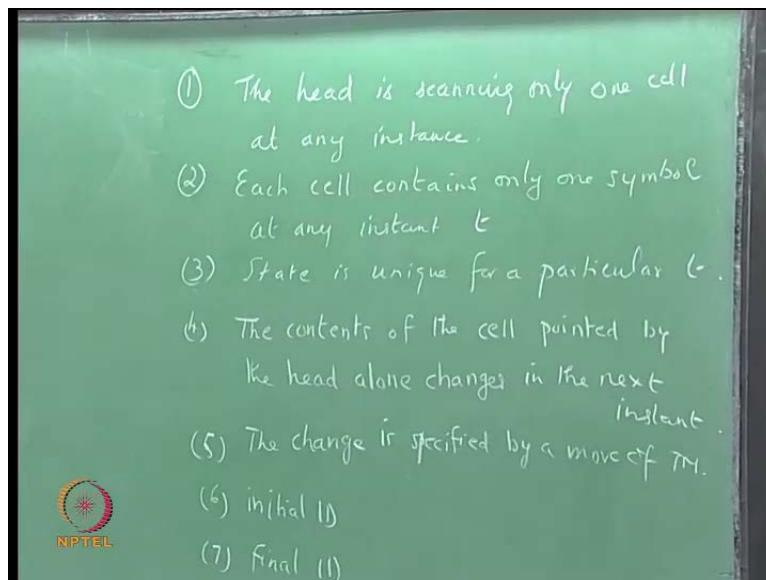 (1) The head is scanning only one cell
at any instance.
(2) Each cell contains only one symbol
at any instant t
(3) State is unique for a particular t.
(4) The contents of the cell pointed by
the head alone changes in the next
instant.
(5) The change is specified by a move of TM.
(6) initial ID
(7) Final ID
NPTEL